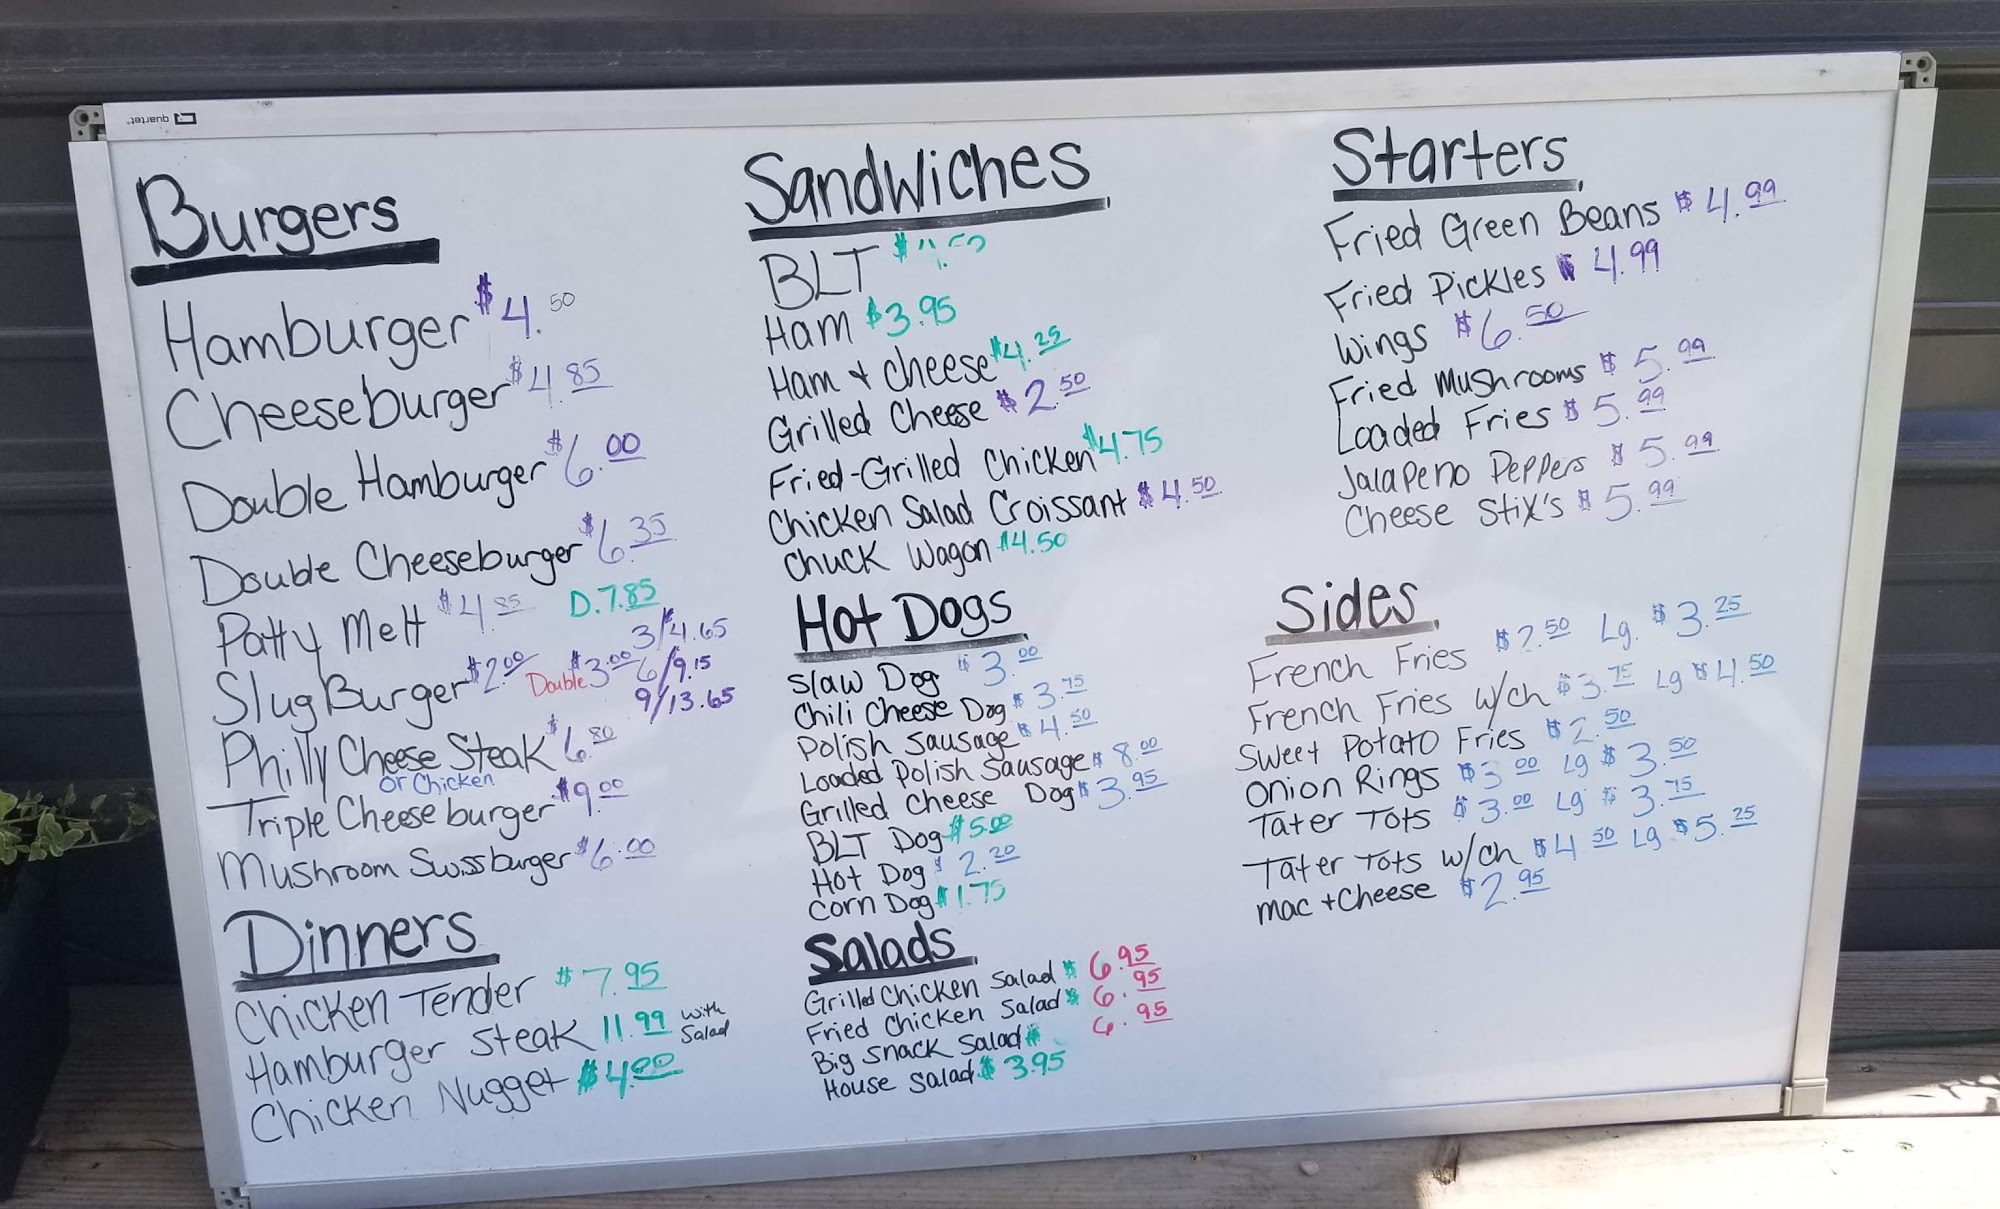 quartet
Burgers
Hamburger $4.50
Cheeseburger $4.85
Double Hamburger $6.00
Double Cheeseburger $6.35
Patty Melt $4.85 D.7.85
3/4.65
Slug Burger $2.00 Double $3.00 6/9.15
9/13.65
Philly Cheese Steak $6.80
or Chicken
Triple Cheeseburger $9.00
Mushroom Swissburger $6.00
Dinners
Chicken Tender $7.95
Hamburger Steak 11.99 with Salad
Chicken Nugget $4.00
Sandwiches
BLT
Ham $3.95
Ham + Cheese $4.25
Grilled Cheese $2.50
Fried-Grilled Chicken $4.75
Chicken Salad Croissant $4.50
Chuck Wagon $4.50
Hot Dogs
Slaw Dog $3.00
Chili Cheese Dog $3.75
Polish Sausage $4.50
Loaded Polish Sausage $8.00
Grilled Cheese Dog $3.95
BLT Dog $5.00
Hot Dog $2.20
Corn Dog $1.75
Salads
Grilled Chicken Salad $6.95
Fried Chicken Salad $6.95
Big Snack Salad $6.95
House Salad $3.95
Starters
Fried Green Beans $4.99
Fried Pickles $4.99
Wings $6.50
Fried Mushrooms $5.99
Loaded Fries $5.99
Jalapeno Peppers $5.99
Cheese Stix's $5.99
Sides
French Fries $2.50 Lg. $3.25
French Fries w/ch $3.75 Lg $4.50
Sweet Potato Fries $2.50
Onion Rings $3.00 Lg $3.50
Tater Tots $3.00 Lg $3.75
Tater Tots w/ch $4.50 Lg $5.25
Mac + Cheese $2.95